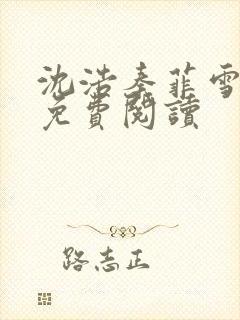 沈浩秦菲雪
免費閱讀
路志正